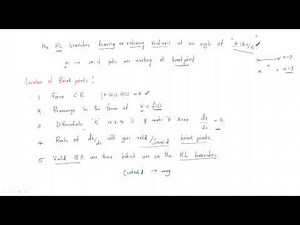 the RL branches leaving or entering realaxis at an angle of "± 180/x"
x → no. of poles are meeting at break point
Location of Break points:
1. Form C.E 1+G(s) H(s) = 0
2. Rearrange in the form of K = f(s)
3. Differentiate 'K' w.r.t s & make it zero dk/ds = 0
4. Roots of dk/ds will give valid/invalid break points.
5. Valid B.P. are those which are on the RL branches.
Centroid →